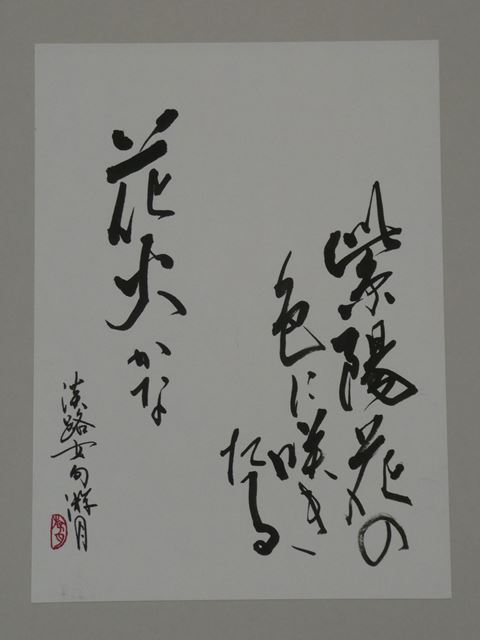 紫陽花の
色に咲き
たる
花火かな
淡路女句 游月